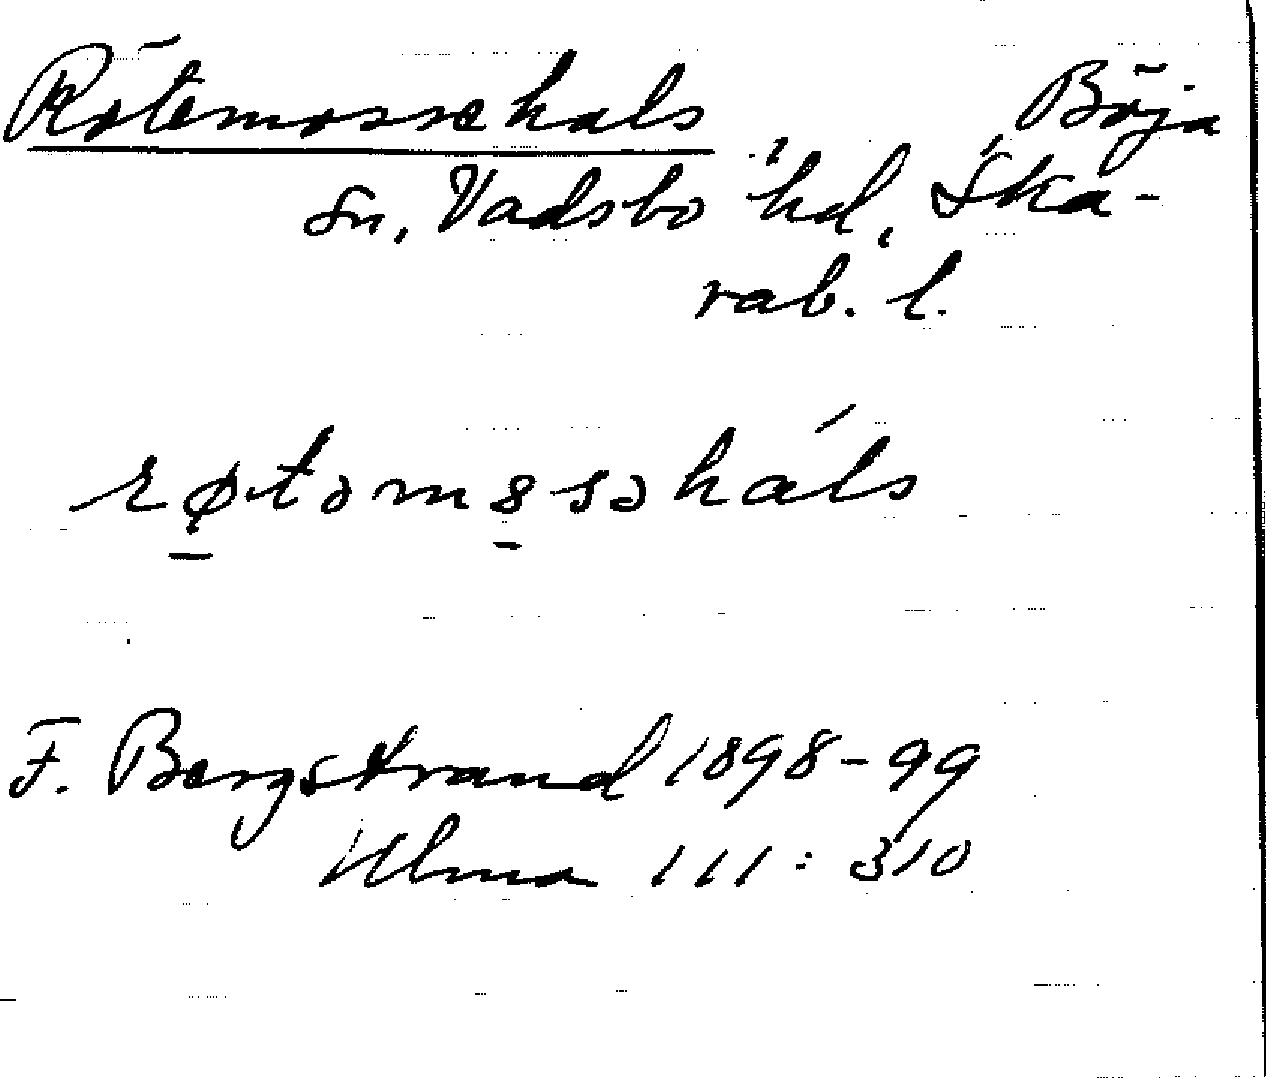 Rötemossehals Böja
sn, Vadsbo hd, Ska-
rab. l.
røtəmɞssəháls
F. Bergstrand 1898-99
Ulma 111:310